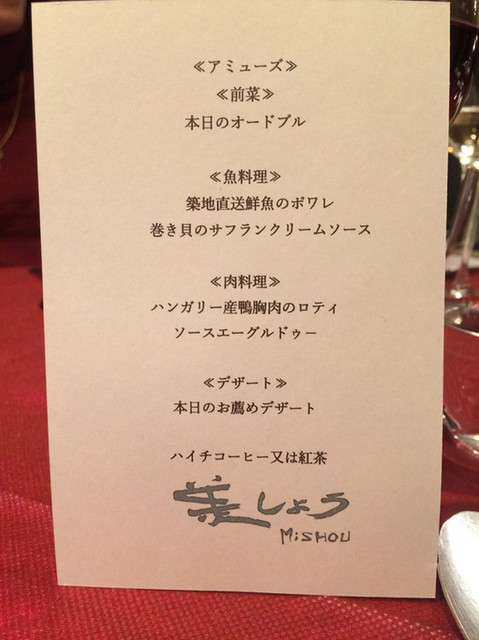 ≪アミューズ≫
≪前菜≫
本日のオードブル
≪魚料理≫
築地直送鮮魚のポワレ
巻き貝のサフランクリームソース
≪肉料理≫
ハンガリー産鴨胸肉のロティ
ソースエーグルドゥー
≪デザート≫
本日のお薦めデザート
ハイチコーヒー又は紅茶
美しょう
MiSHOU